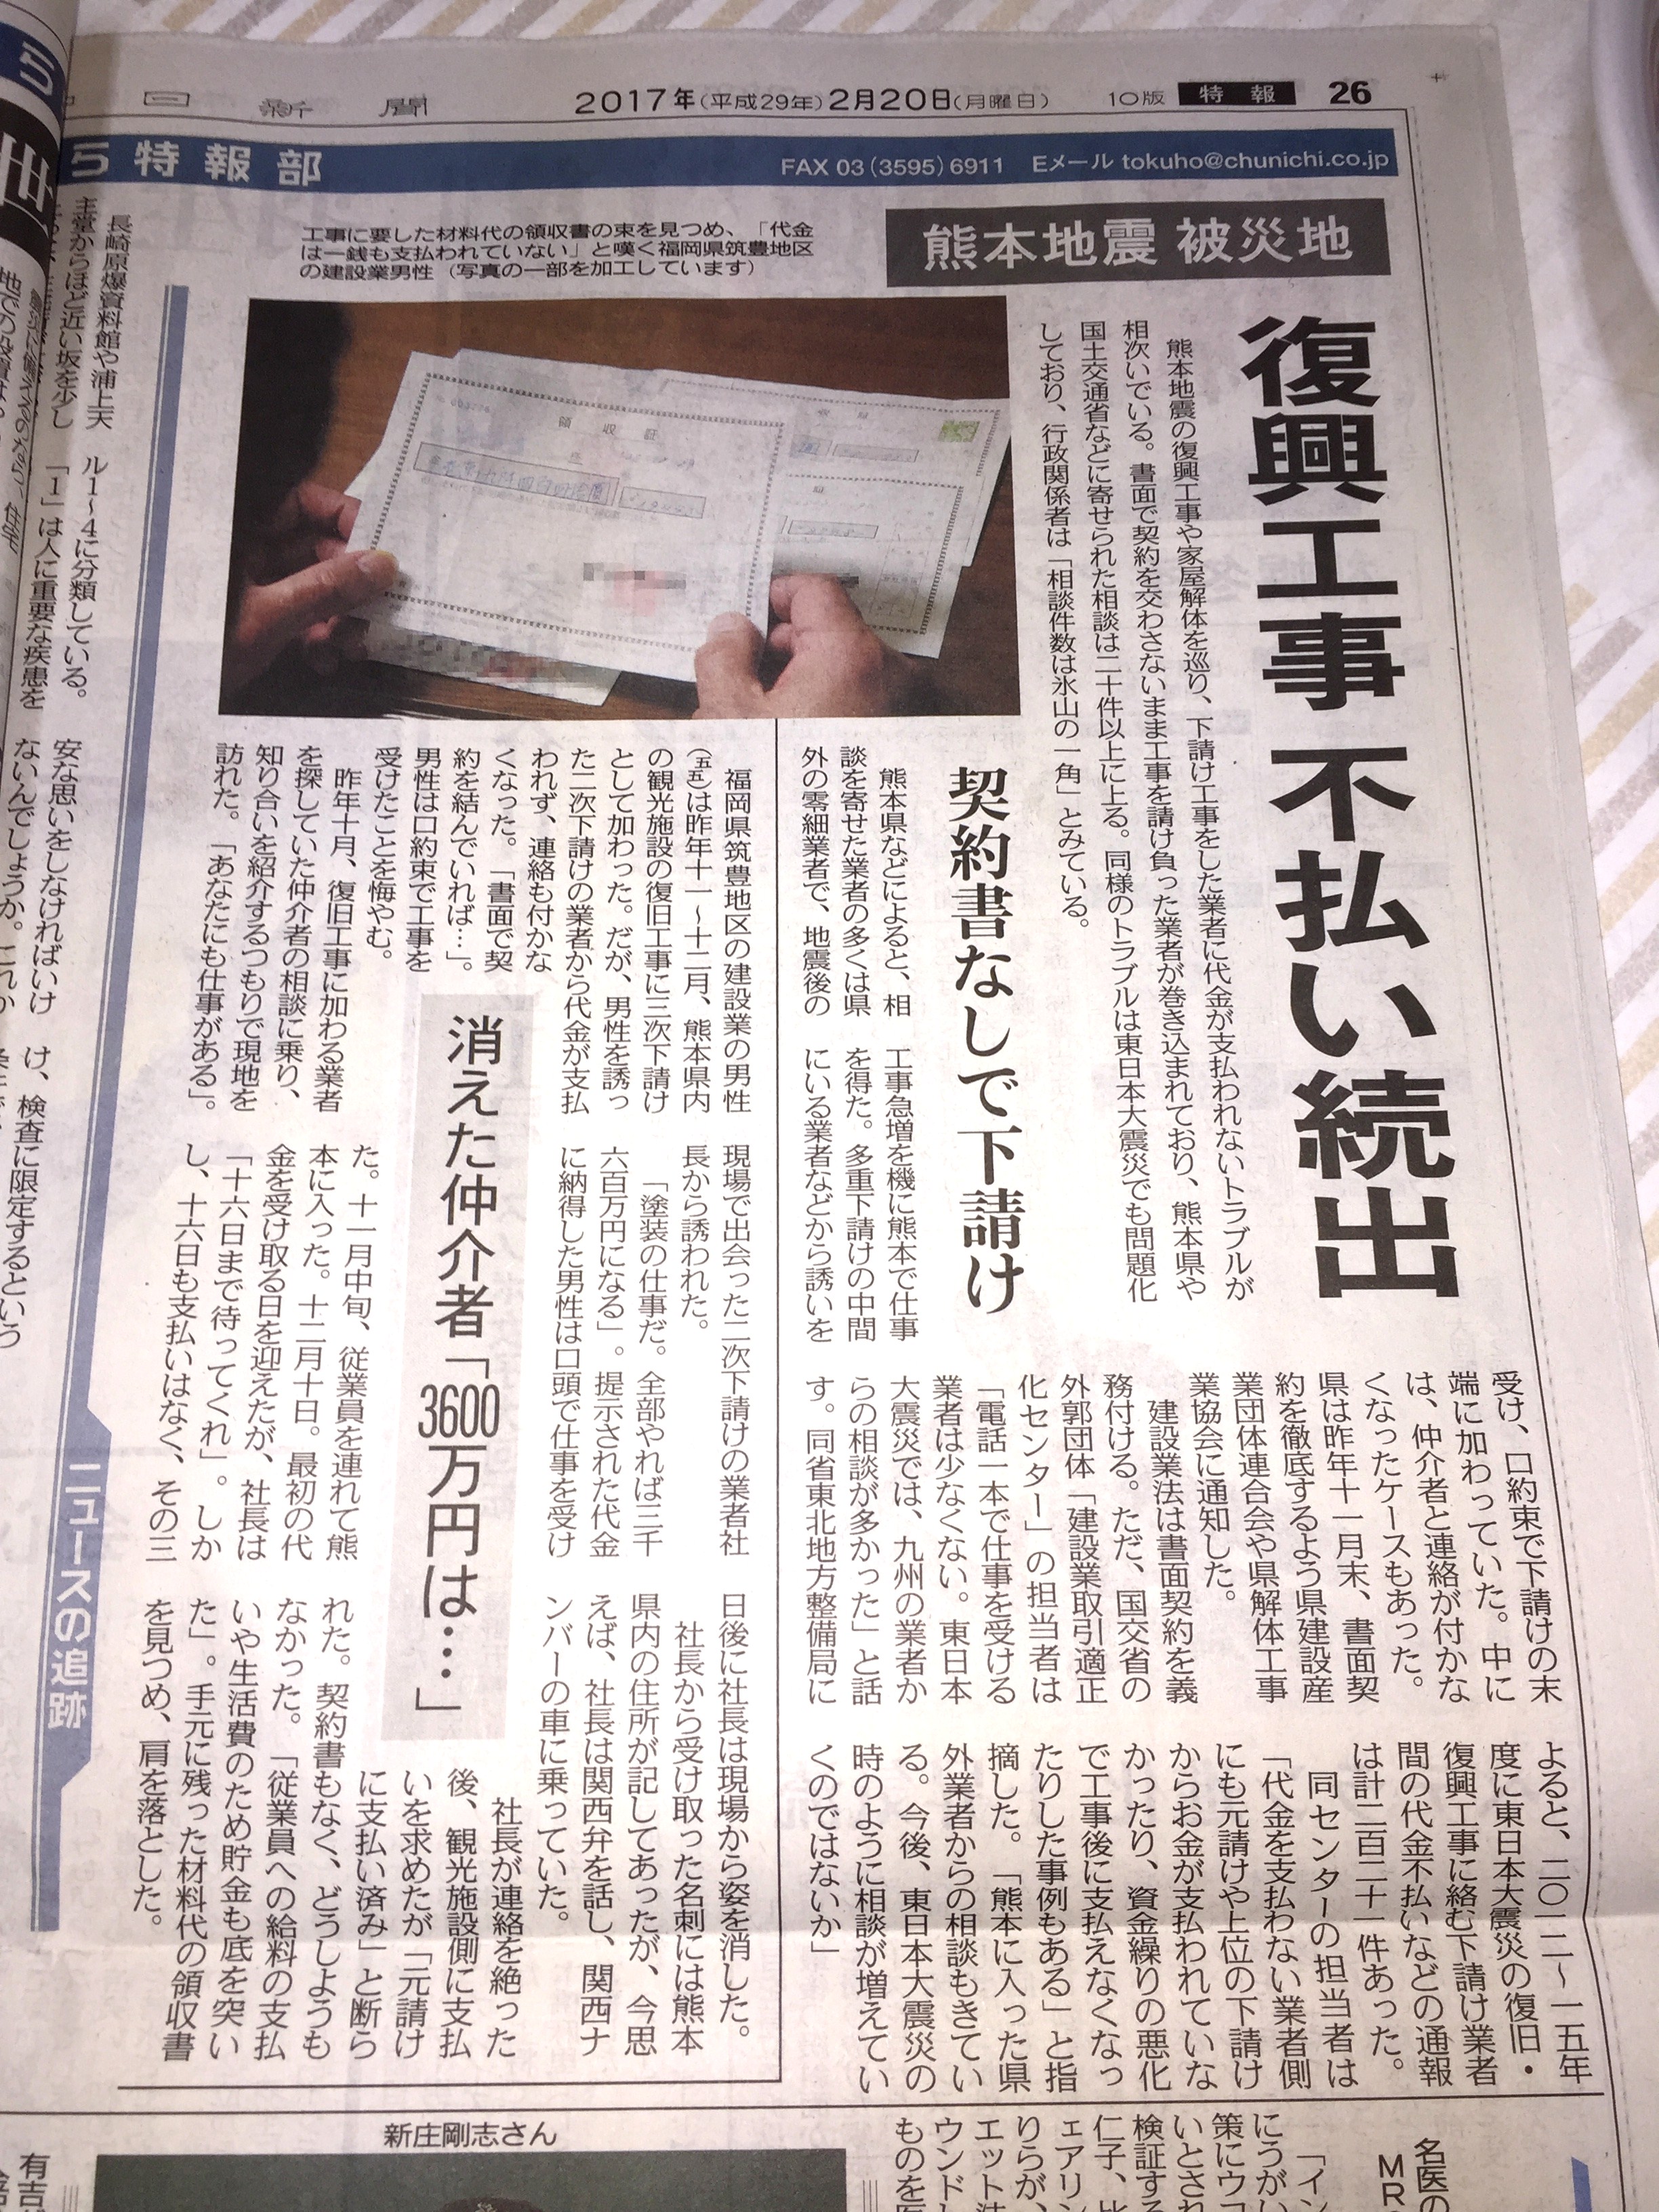 日新聞
2017年(平成29年)2月20日(月曜日)
10版 特報 26
ら特報部
FAX 03(3595)6911 Eメール tokuho@chunichi.co.jp
熊本地震 被災地
復興工事 不払い続出
熊本地震の復興工事や家屋解体を巡り、下請け工事をした業者に代金が支払われないトラブルが
相次いでいる。書面で契約を交わさないまま工事を請け負った業者が巻き込まれており、熊本県や
国土交通省などに寄せられた相談は二十件以上に上る。同様のトラブルは東日本大震災でも問題化
しており、行政関係者は「相談件数は氷山の一角」とみている。
工事に要した材料代の領収書の束を見つめ、「代金
は一銭も支払われていない」と嘆く福岡県筑豊地区
の建設業男性(写真の一部を加工しています)
領収証
契約書なしで下請け
熊本県などによると、相
談を寄せた業者の多くは県
外の零細業者で、地震後の
工事急増を機に熊本で仕事
を得た。多重下請けの中間
にいる業者などから誘いを
受け、口約束で下請けの末
端に加わっていた。中に
は、仲介者と連絡が付かな
くなったケースもあった。
県は昨年十一月末、書面契
約を徹底するよう県建設産
業団体連合会や県解体工事
業協会に通知した。
建設業法は書面契約を義
務付ける。ただ、国交省の
外郭団体「建設業取引適正
化センター」の担当者は
「電話一本で仕事を受ける
業者は少なくない。東日本
大震災では、九州の業者か
らの相談が多かった」と話
す。同省東北地方整備局に
よると、二〇一二〜一五年
度に東日本大震災の復旧・
復興工事に絡む下請け業者
間の代金不払いなどの通報
は計二百二十一件あった。
同センターの担当者は
「代金を支払わない業者側
にも元請けや上位の下請け
からお金が支払われていな
かったり、資金繰りの悪化
で工事後に支払えなくなっ
たりした事例もある」と指
摘した。「熊本に入った県
外業者からの相談もきてい
る。今後、東日本大震災の
時のように相談が増えてい
くのではないか」
消えた仲介者「3600万円は…」
福岡県筑豊地区の建設業の男性
(五五)は昨年十一〜十二月、熊本県内
の観光施設の復旧工事に三次下請け
として加わった。だが、男性を誘っ
た二次下請けの業者から代金が支払
われず、連絡も付かな
くなった。「書面で契
約を結んでいれば…」。
男性は口約束で工事を
受けたことを悔やむ。
昨年十月、復旧工事に加わる業者
を探していた仲介者の相談に乗り、
知り合いを紹介するつもりで現地を
訪れた。「あなたにも仕事がある」。
現場で出会った二次下請けの業者社
長から誘われた。
「塗装の仕事だ。全部やれば三千
六百万円になる」。提示された代金
に納得した男性は口頭で仕事を受け
た。十一月中旬、従業員を連れて熊
本に入った。十二月十日。最初の代
金を受け取る日を迎えたが、社長は
「十六日まで待ってくれ」。しか
し、十六日も支払いはなく、その三
日後に社長は現場から姿を消した。
社長から受け取った名刺には熊本
県内の住所が記してあったが、今思
えば、社長は関西弁を話し、関西ナ
ンバーの車に乗っていた。
社長が連絡を絶った
後、観光施設側に支払
いを求めたが「元請け
に支払い済み」と断ら
れた。契約書もなく、どうしようも
なかった。「従業員への給料の支払
いや生活費のため貯金も底を突い
た」。手元に残った材料代の領収書
を見つめ、肩を落とした。
ニュースの追跡
長崎原爆資料館や浦上天
主堂からほど近い坂を少し
ル1〜4に分類している。
「1」は人に重要な疾患を
安な思いをしなければいけ
ないんでしょうか。これか
け、検査に限定するという
新庄剛志さん
名医の
「イン
にうがい
策にウコ
いとされ
検証する
仁子、比
エアリン
りらが、
エット法
ウンドし
ものを医
有吉